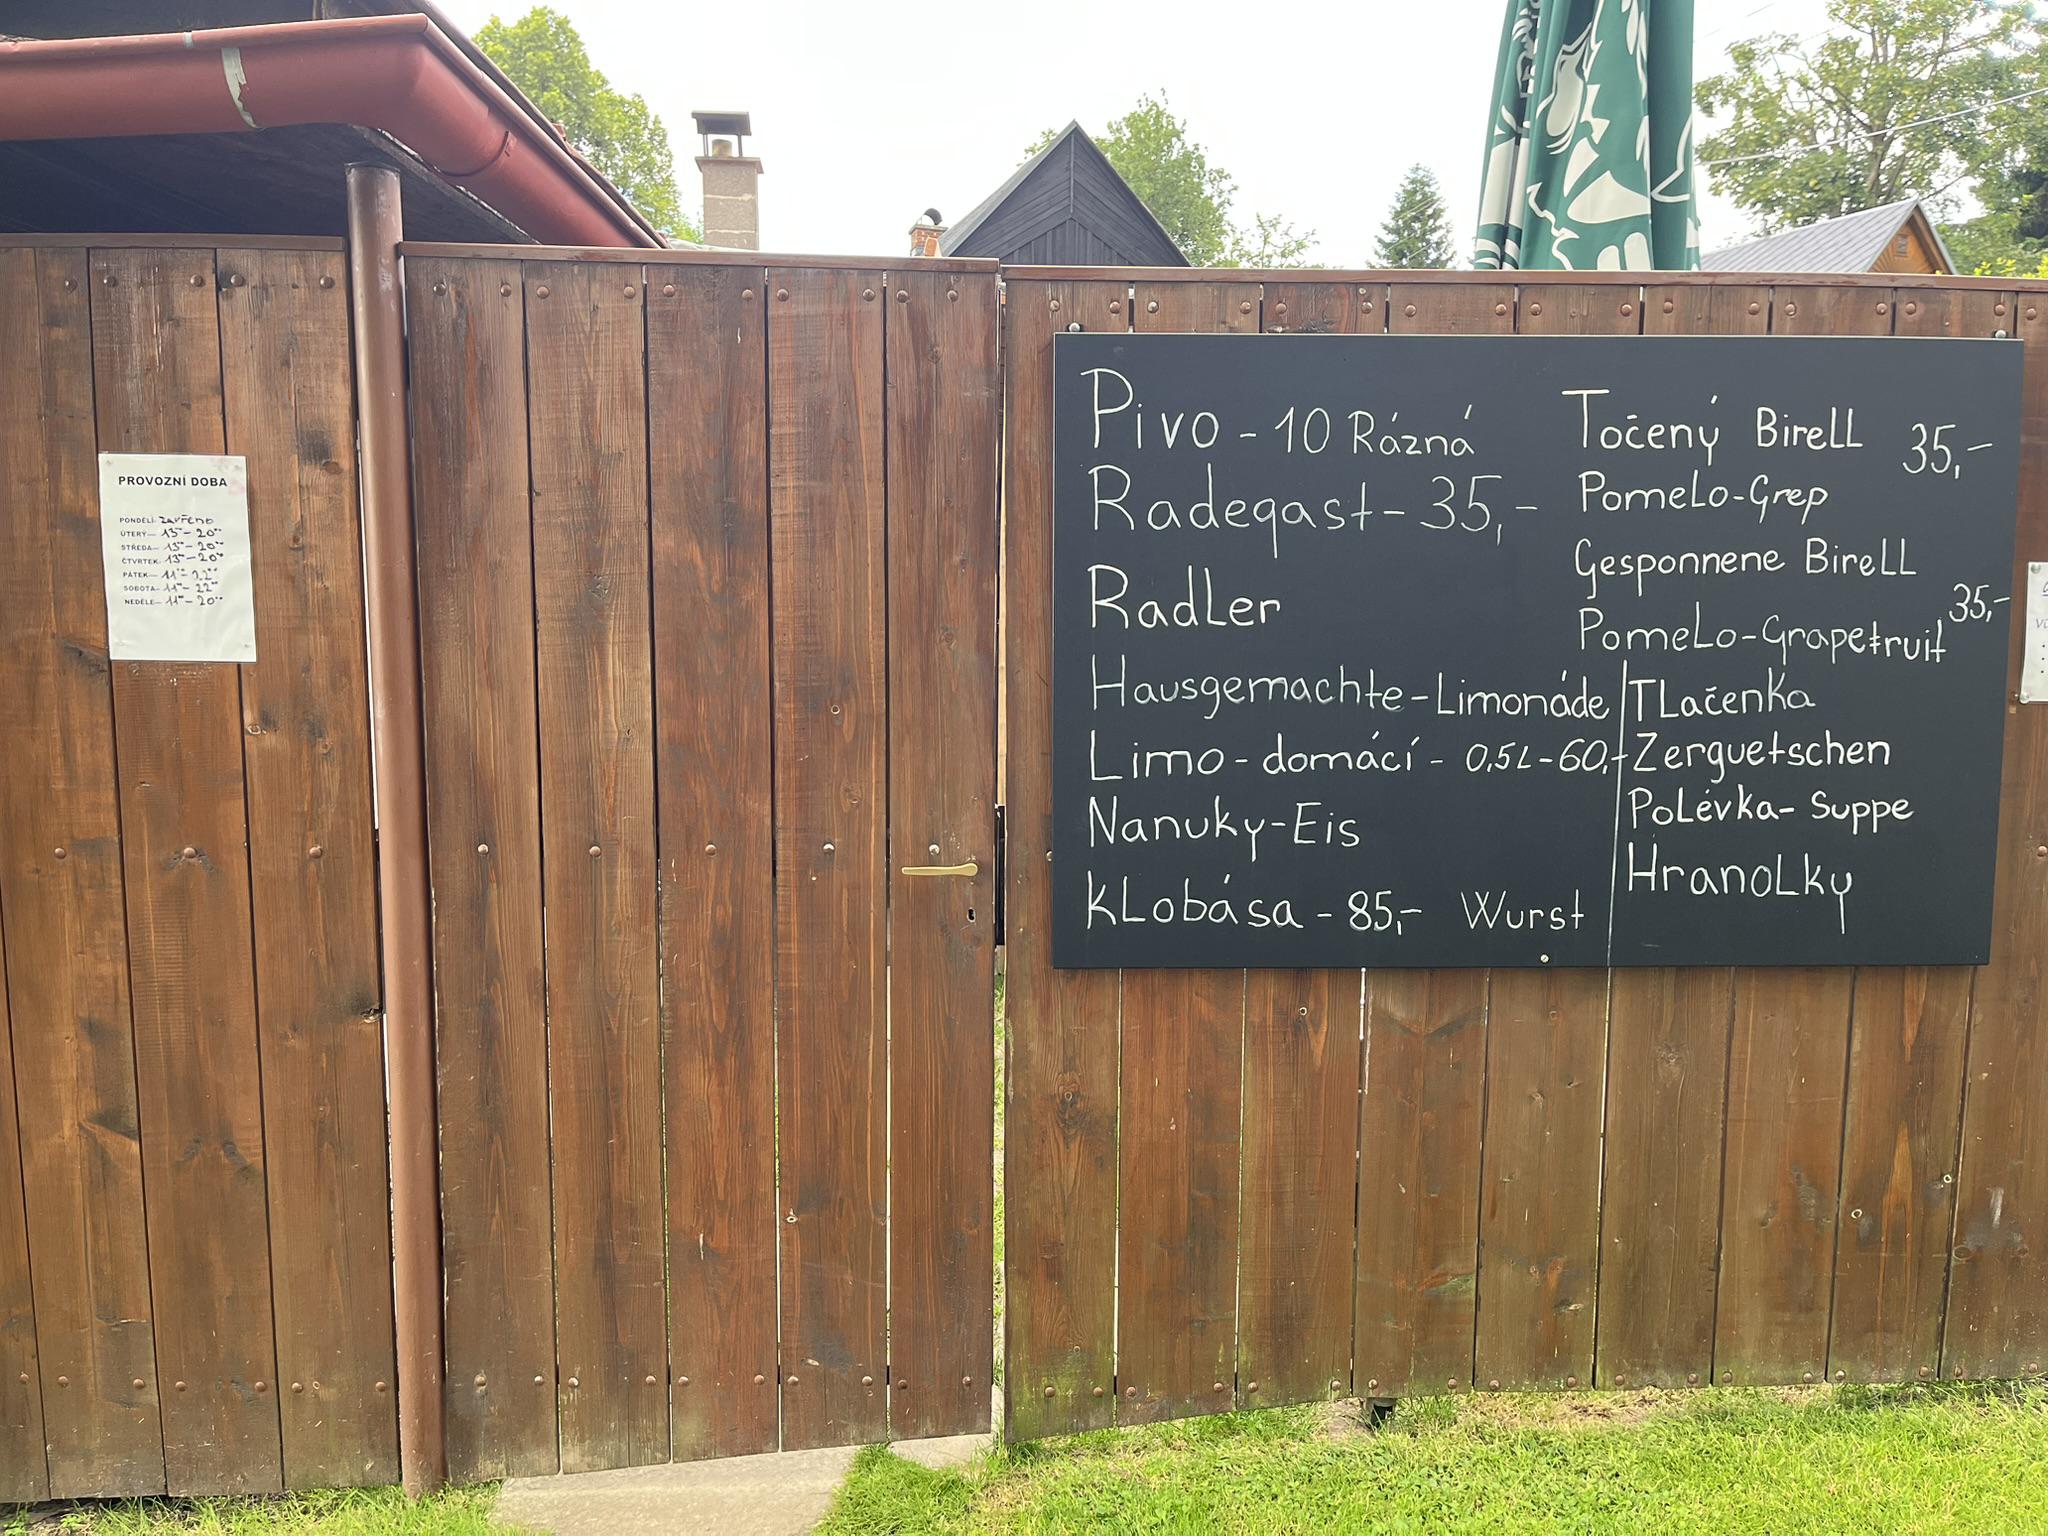 PROVOZNÍ DOBA
PONDĚLÍ- zavřeno
ÚTERÝ- 13⁰⁰- 20⁰⁰
STŘEDA- 13⁰⁰- 20⁰⁰
ČTVRTEK- 13⁰⁰- 20⁰⁰
PÁTEK- 11⁰⁰- 22⁰⁰
SOBOTA- 11⁰⁰- 22⁰⁰
NEDĚLE- 11⁰⁰- 20⁰⁰
Pivo - 10 Rázná
Radegast - 35,-
Radler
Hausgemachte - Limonáde
Limo - domácí - 0,5L - 60,-
Nanuky - Eis
Klobása - 85,- Wurst
Točený Birell 35,-
Pomelo - Grep
Gesponnene Birell
Pomelo - Grapetruit 35,-
Tlačenka
Zerguetschen
Polévka - Suppe
Hranolky